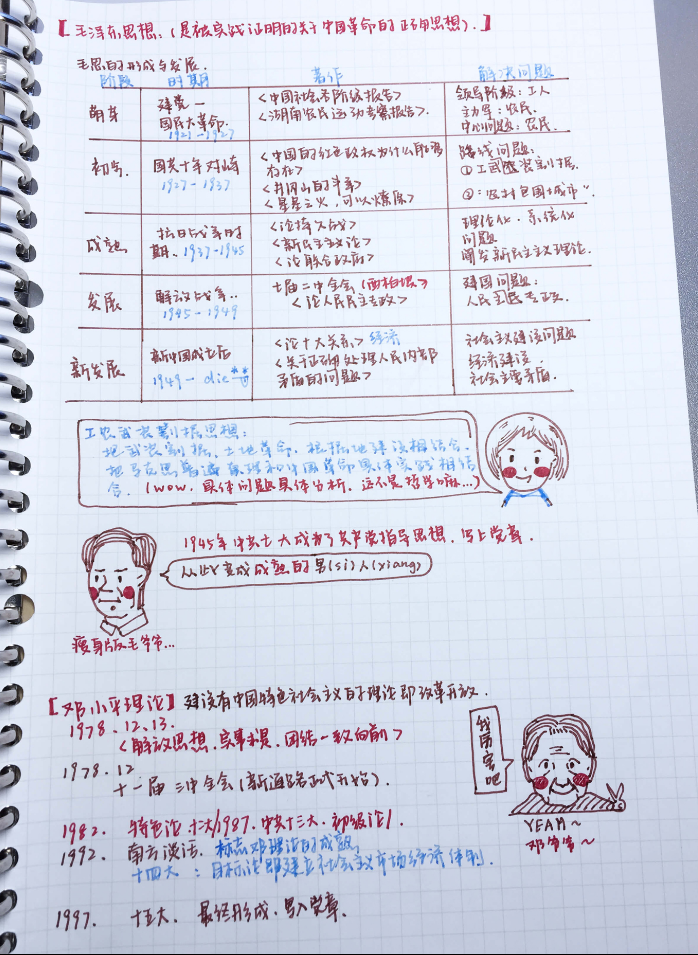 【毛泽东思想：（是被实践证明的关于中国革命的正确思想）.】
毛思的形成与发展.
阶段 时期 著作 解决问题
萌芽 建党一国民大革命. 1921-1927 <中国社会各阶级报告> <湖南农民运动考察报告>. 领导阶级：工人 主力军：农民. 中心问题：农民.
初步. 国共十年对峙 1927-1937 <中国的红色政权为什么能够存在> <井冈山的斗争> <星星之火，可以燎原> 路线问题： ①工武装割据. ②："农村包围城市".
成熟 抗日战争时期、1937-1945 <论持久战> <新民主主义论> <论联合政府> 理论化·系统化问题 阐发新民主主义理论.
发展 解放战争.. 1945-1949 七届二中全会（西柏坡） <论人民民主专政> 建国问题： 人民民主专政.
新发展 新中国成立后 1949-die** <论十大关系> 经济 <关于正确处理人民内部矛盾的问题> 社会主义建设问题 经济建设. 社会主要矛盾.
工农武装割据思想：
把武装割据、土地革命、根据地建设相结合.
把马克思普遍原理和中国革命具体实践相结
合.（wow，具体问题具体分析，这不是哲学嘛...）
1945年中共七大成为了共产党指导思想，写上党章.
从此变成成熟的男(si)人(xiang)
瘦身版毛爷爷...
【邓小平理论】建设有中国特色社会主义的理论即改革开放.
1978.12.13.
<解放思想，实事求是，团结一致向前>
1978.12
十一届三中全会（新道路正式开始）.
我厉害吧
1982. 特色论 十二大/1987.中共十三大.初级论/.
YEAH~
1992. 南方谈话. 标志邓理论的成熟,
邓爷爷~
十四大：目标论即建立社会主义市场经济体制.
1997. 十五大. 最终形成，写入党章.